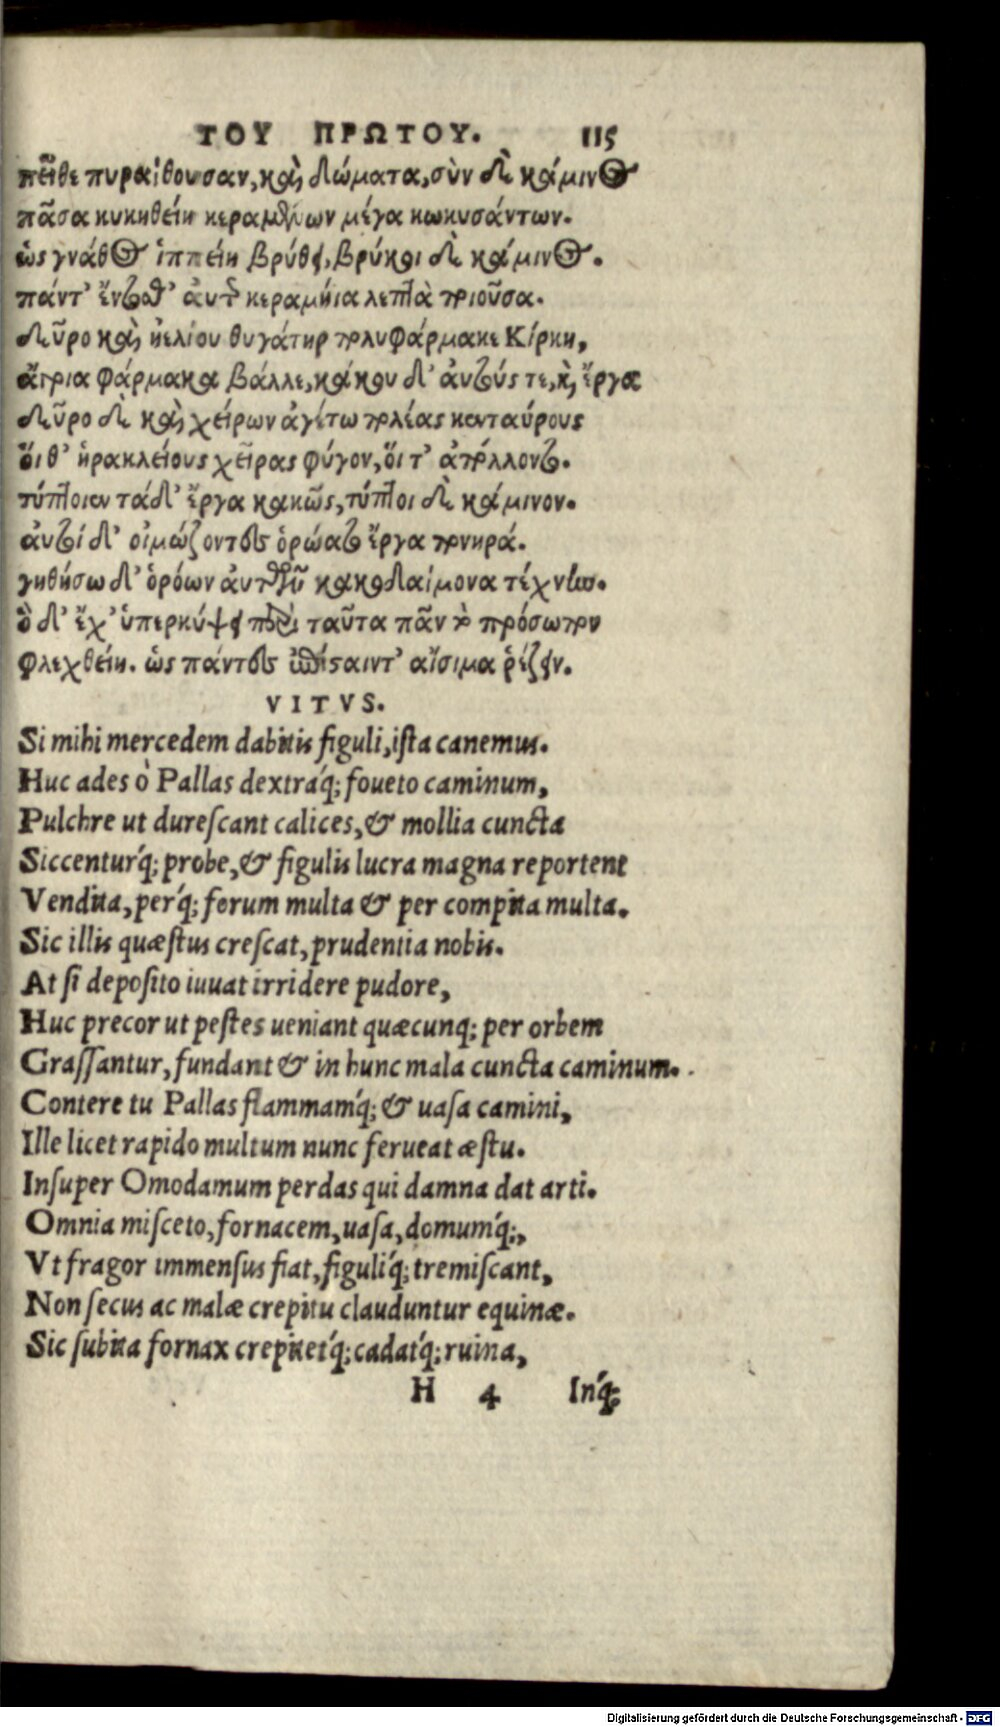 ΤΟΥ ΠΡΩΤΟΥ. 115
πεῖθε πυραίθουσαν, καὶ δώματα, σὺν δὲ κάμινος
πᾶσα κυκηθείη κεραμέων μέγα κωκυσάντων.
ὡς γνάθος ἱππείη βρύθει, βρύκοι δὲ κάμινος.
πάντ' ἔντοσθ' αὐτῆς κεραμήια λεπτὰ ποιοῦσα.
δεῦρο καὶ ἠελίου θυγάτηρ πολυφάρμακε Κίρκη,
ἄγρια φάρμακα βάλλε, κάκου δ' αὐτούς τε, κὶ ἔργα
δεῦρο δὲ καὶ χείρων ἀγέτω πολέας κενταύρους
οἵ θ' ἡρακλείους χεῖρας φύγον, οἵ τ' ἀπόλλοντο.
τύπτοιεν τάδ' ἔργα κακῶς, τύπτοι δὲ κάμινον.
αὐτοί δ' οἰμώζοντες ὁρώατο ἔργα πονηρά.
γηθήσω δ' ὁρόων αὐτῶν κακοδαίμονα τέχνην.
ὃ δ' ἔχ' ὑπερκύψει περὶ ταῦτα πᾶν τὸ πρόσωπον
φλεχθείη. ὡς πάντες ἐπίσαιντ' αἴσιμα ῥέζειν.
VITVS.
Si mihi mercedem dabitis figuli, ista canemus.
Huc ades ò Pallas dextráq; foueto caminum,
Pulchre ut durescant calices, & mollia cuncta
Siccenturq́; probe, & figulis lucra magna reportent
Vendita, perq́; forum multa & per compita multa.
Sic illis quæstus crescat, prudentia nobis.
At si deposito iuuat irridere pudore,
Huc precor ut pestes ueniant quæcunq; per orbem
Grassantur, fundant & in hunc mala cuncta caminum.
Contere tu Pallas flammamq́; & uasa camini,
Ille licet rapido multum nunc ferueat æstu.
Insuper Omodamum perdas qui damna dat arti.
Omnia misceto, fornacem, uasa, domumq́;,
Vt fragor immensus fiat, figuliq́; tremiscant,
Non secus ac malæ crepitu clauduntur equinæ.
Sic subita fornax crepitetq́; cadatq́; ruina,
H 4 Inq́;
Digitalisierung gefördert durch die Deutsche Forschungsgemeinschaft - DFG